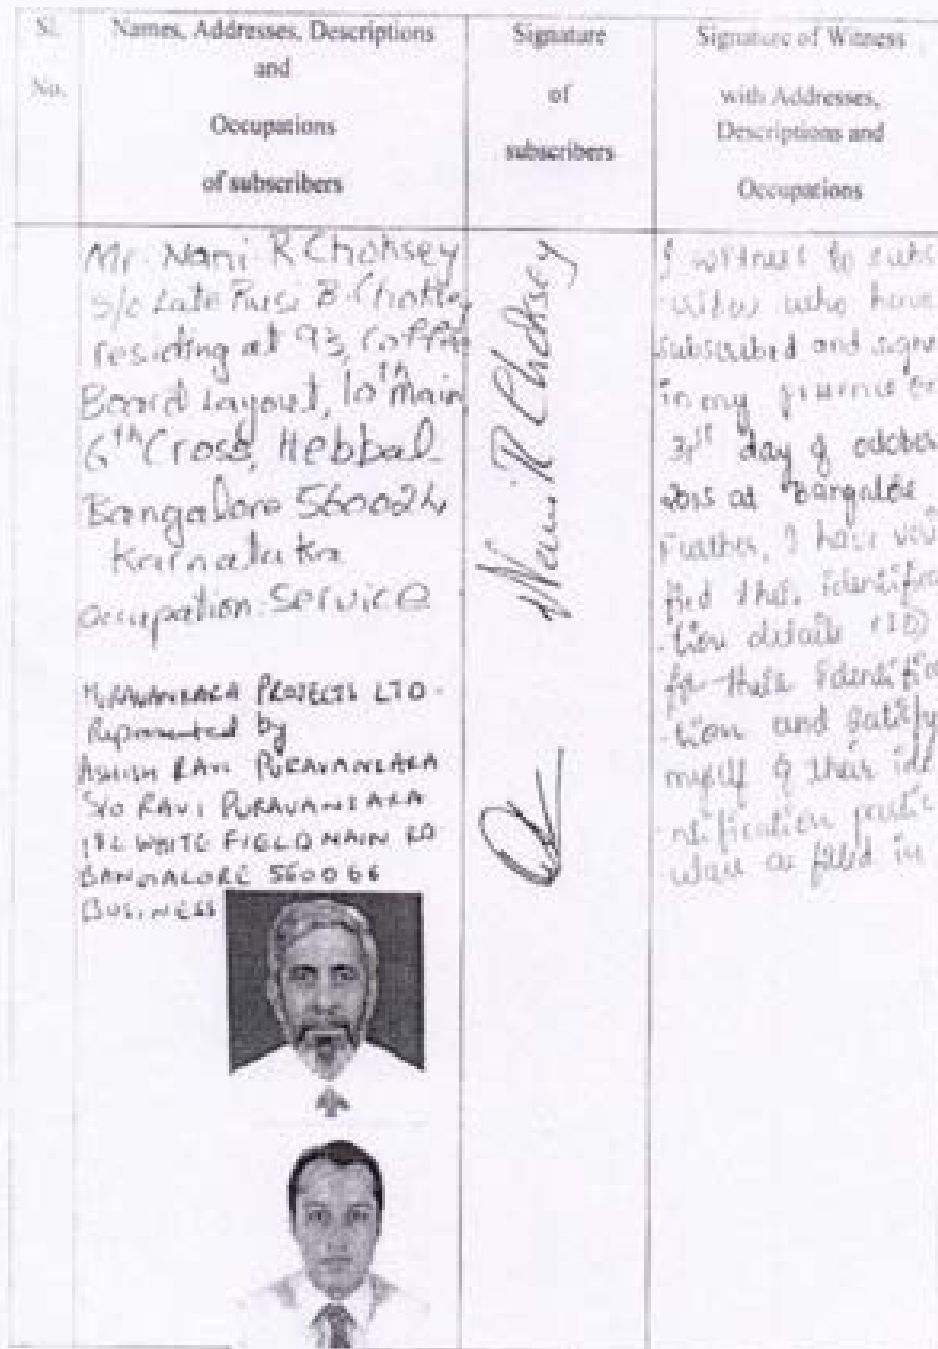 Sl.
No.
Names, Addresses, Descriptions
and
Occupations
of subscribers
Signature
of
subscribers
Signature of Witness
with Addresses,
Descriptions and
Occupations
Mr. Nani R Choksey
S/o Late Rusi B. Choksey
residing at 93, Coffee
Board Layout, 10th main
6th Cross, Hebbal
Bangalore 560024
Karnataka
Occupation: Service
PURAVANKARA PROJECTS LTD.
Represented by
ASHISH RAVI PURAVANKARA
S/O RAVI PURAVANKARA
WHITE FIELD MAIN RD
BANGALORE 560066
BUSINESS
Nani R Choksey
I witness to subs
who have
subscribed and signe
in my presence on
31st day of october
2015 at Bangalore
Further, I have veri
fied their identifica
tion details (ID)
for their identifica
tion and satisfy
myself of their ide
ntification partic
ulars as filled in